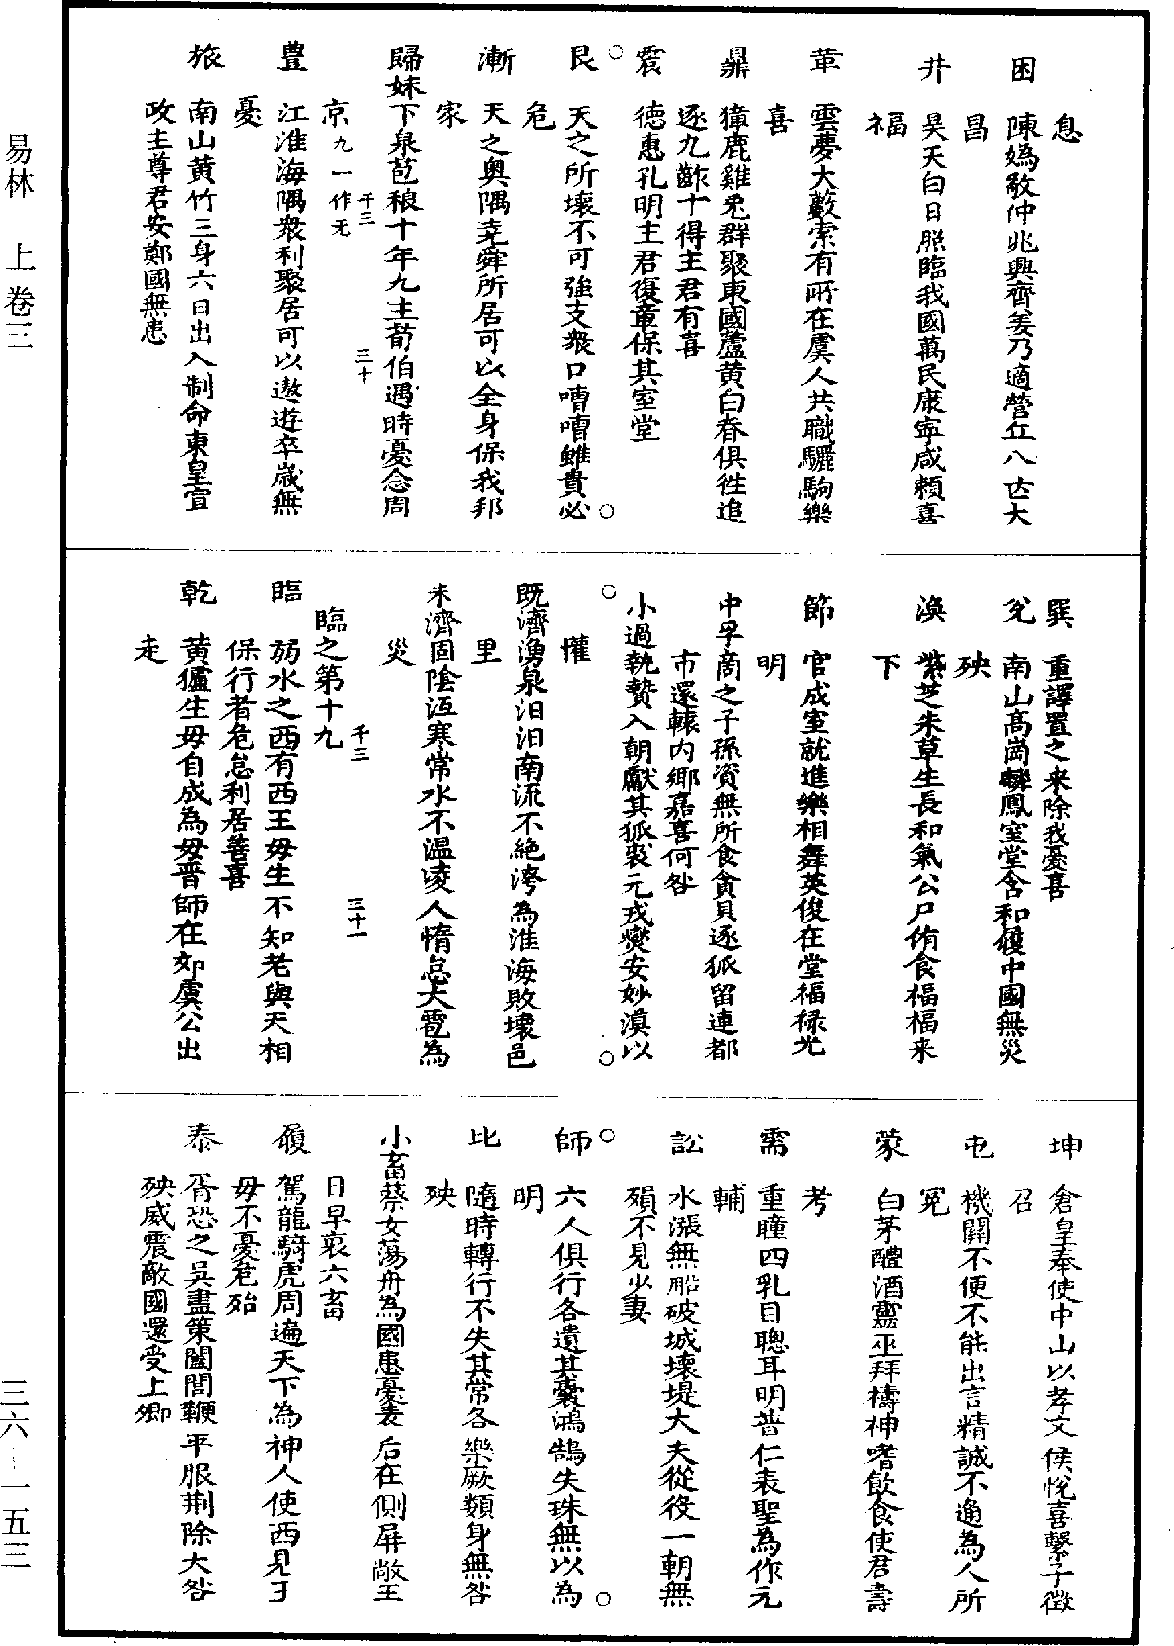 息
困 陳媯敬仲兆興齊姜乃適營丘八世大
昌
井 昊天白日照臨我國萬民康寧咸賴喜
福
革 雲夢大藪索有所在虞人共職驪駒樂
喜
鼎 獐鹿雞兎群聚東國蘆黄白脊俱徃追
逐九齚十得主君有喜
震 徳惠孔明主君復章保其室堂
○
艮 天之所壞不可強支衆口嘈嘈雖貴必
危
○
漸 天之奥隅堯舜所居可以全身保我邦
家
歸妹下泉苞稂十年九主荀伯遇時憂念周
京 九一作无
千三 三十
豊 江淮海隅衆利聚居可以遨遊卒歳無
憂
旅 南山黄竹三身六目出入制命東皇宣
政主尊君安鄭國無患
巽 重譯置之来除我憂喜
兊 南山高崗麟鳳室堂含和履中國無災
殃
渙 紫芝朱草生長和氣公尸侑食福福来
下
節 官成室就進樂相舞英俊在堂福禄光
明
中孚商之子孫資無所食貪貝逐狐留連都
市還轅内郷嘉喜何咎
小過執贄入朝獻其狐裘元戎爕安妙漠以
○
懽
○
既濟湧泉汩汩南流不絶澇為淮海敗壞邑
里
未濟固陰沍寒常水不温凌人惰怠大雹為
災
臨之第十九
千三 三十一
臨 弱水之西有西王毋生不知老與天相
保行者危怠利居善喜
乾 黄獹生毋自成為毋晋師在郊虞公出
走
坤 倉皇奉使中山以孝文侯悅喜繫子徴
召
屯 機關不便不能出言精誠不通為人所
冤
蒙 白茅醴酒靈巫拜禱神嗜飲食使君壽
考
需 重瞳四乳目聰耳明普仁表聖為作元
輔
訟 水漲無船破城壞堤大夫從役一朝無
殞不見少妻
○
師 六人俱行各遺其囊鴻鵠失珠無以為
明
○
比 隨時轉行不失其常各樂厥類身無咎
殃
小畜蔡女蕩舟為國患憂袤后在側屏敞王
日早衷六畜
履 駕龍騎虎周遍天下為神人使西見王
毋不憂危殆
泰 胥恐之吳畫策闔閭鞭平服荆除大咎
殃威震敵國還受上卿
易林 上卷三
三六-一五三